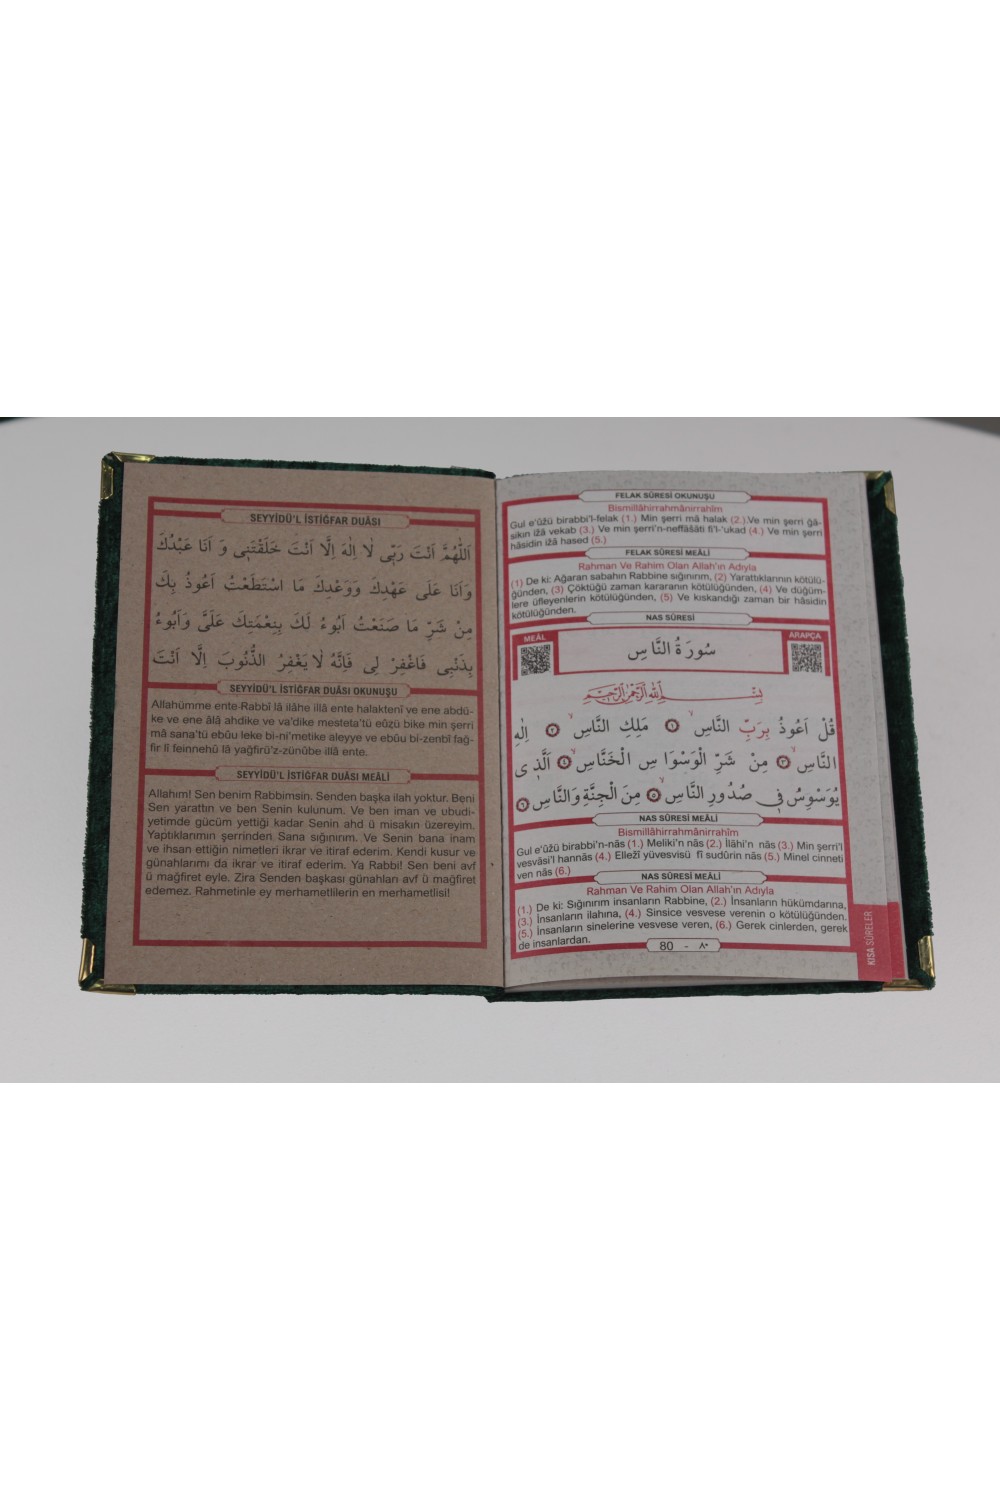 SEYYİDÜ'L İSTİĞFAR DUÂSI
اَللّٰهُمَّ اَنْتَ رَبّ۪ى لَا اِلٰهَ اِلَّا اَنْتَ خَلَقْتَن۪ى وَ اَنَا عَبْدُكَ
وَاَنَا عَلَى عَهْدِكَ وَوَعْدِكَ مَا اسْتَطَعْتُ اَعُوذُ بِكَ
مِنْ شَرِّ مَا صَنَعْتُ اَبُوءُ لَكَ بِنِعْمَتِكَ عَلَىَّ وَاَبُوءُ
بِذَنْب۪ى فَاغْفِرْ ل۪ى فَاِنَّهُ لَا يَغْفِرُ الذُّنُوبَ اِلَّا اَنْتَ
SEYYİDÜ'L İSTİĞFAR DUÂSI OKUNUŞU
Allahümme ente Rabbî lâ ilâhe illâ ente halaktenî ve ene abdü-
ke ve ene âlâ ahdike ve va'dike mesteta'tü eûzü bike min şerri
mâ sana'tü ebûu leke bi-ni'metike aleyye ve ebûu bi-zenbî fağ-
fir lî feinnehû lâ yağfirü'z-zünûbe illâ ente.
SEYYİDÜ'L İSTİĞFAR DUÂSI MEÂLİ
Allahım! Sen benim Rabbimsin. Senden başka ilah yoktur. Beni
Sen yarattın ve ben Senin kulunum. Ve ben iman ve ubudi-
yetimde gücüm yettiği kadar Senin ahd ü misakın üzereyim.
Yaptıklarımın şerrinden Sana sığınırım. Ve Senin bana inam
ve ihsan ettiğin nimetleri ikrar ve itiraf ederim. Kendi kusur ve
günahlarımı da ikrar ve itiraf ederim. Ya Rabbi! Sen beni avf
ü mağfiret eyle. Zira Senden başkası günahları avf ü mağfiret
edemez. Rahmetinle ey merhametlilerin en merhametlisi!
FELAK SÛRESİ OKUNUŞU
Bismillâhirrahmânirrahîm
Gul e'ûžü birabbi'l-felak (1.) Min şerri mâ halak (2.) Ve min şerri ğâ-
sikın ižâ vekab (3.) Ve min şerri'n-neffâsâti fi'l-'ukad (4.) Ve min şerri
hâsidin ižâ hased (5.)
FELAK SÛRESİ MEÂLİ
Rahman Ve Rahim Olan Allah'ın Adıyla
(1) De ki: Ağaran sabahın Rabbine sığınırım, (2) Yarattıklarının kötülü-
ğünden, (3) Çöktüğü zaman kararanın kötülüğünden, (4) Ve düğüm-
lere üfleyenlerin kötülüğünden, (5) Ve kıskandığı zaman bir hâsidin
kötülüğünden.
NAS SÛRESİ
MEÂL
سُورَةُ النَّاسِ
ARAPÇA
بِسْمِ اللّٰهِ الرَّحْمٰنِ الرَّح۪يمِ
قُلْ اَعُوذُ بِرَبِّ النَّاسِ ۙ ١ مَلِكِ النَّاسِ ۙ ٢ اِلٰهِ
النَّاسِ ۙ ٣ مِنْ شَرِّ الْوَسْوَاسِ الْخَنَّاسِ ۙ ٤ اَلَّذ۪ى
يُوَسْوِسُ ف۪ى صُدُورِ النَّاسِ ۙ ٥ مِنَ الْجِنَّةِ وَالنَّاسِ ٦
NAS SÛRESİ MEÂLİ
Bismillâhirrahmânirrahîm
Gul e'ûžü birabbi'n-nâs (1.) Meliki'n nâs (2.) İlâhi'n nâs (3.) Min şerri'l
vesvâsi'l hannâs (4.) Elležî yüvesvisü fî sudûrin nâs (5.) Minel cinneti
ven nâs (6.)
NAS SÛRESİ MEÂLİ
Rahman Ve Rahim Olan Allah'ın Adıyla
(1.) De ki: Sığınırım insanların Rabbine, (2.) İnsanların hükümdarına,
(3.) İnsanların ilahına, (4.) Sinsice vesvese verenin o kötülüğünden.
(5.) İnsanların sinelerine vesvese veren, (6.) Gerek cinlerden, gerek
de insanlardan.
80 - ٨٠
KISA SÛRELER